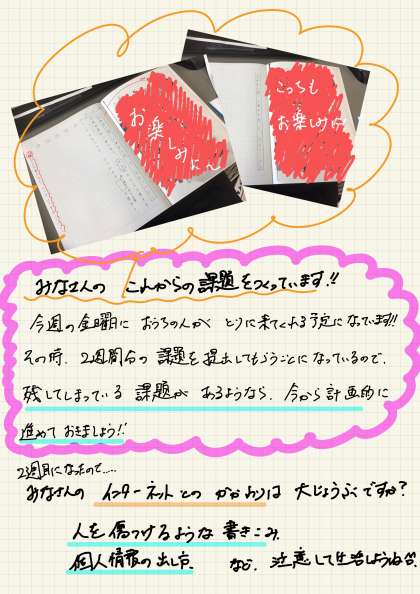 お楽しみに
こっちも
お楽しみに
みなさんの これからの課題をつくっています!!
今週の金曜日に おうちの人が とりに来てくれる予定になっています!!
その時、2週間分の 課題を提出してもらうことになっているので、
残してしまっている 課題が あるようなら、今から計画的に
進めて おきましょう!!
2週目になったので……
みなさんの インターネットとの かかわりは 大じょうぶですか?
人を傷つけるような 書きこみ、
個人情報の出し方、 など、注意して生活しようね